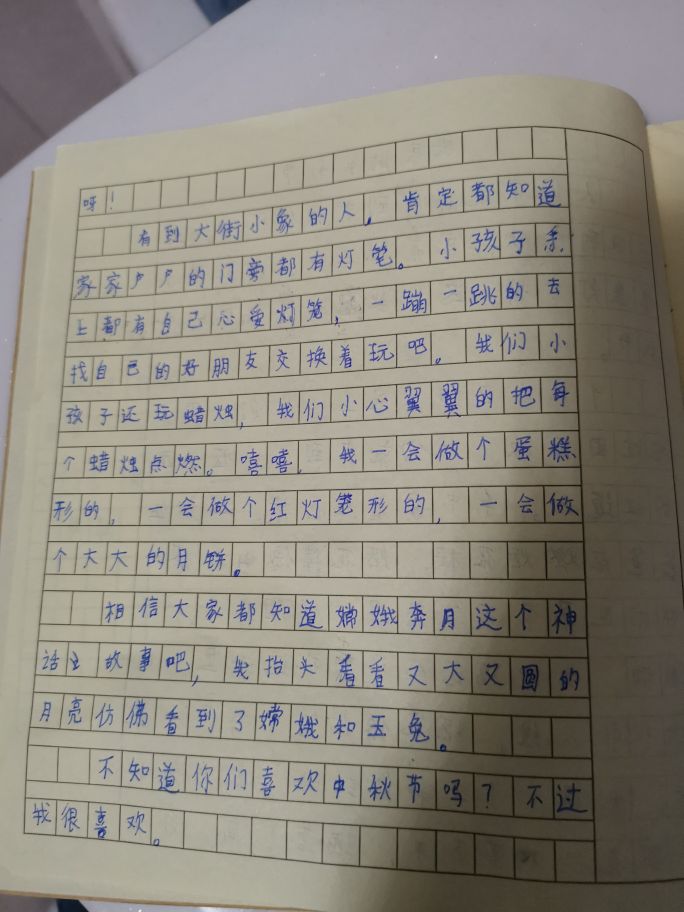 呀！
看到大街小象的人，肯定都知道
家家户户的门旁都有灯笔。小孩子系
上都有自己心爱灯笼，一蹦一跳的去
找自己的好朋友交换着玩吧。我们小
孩子还玩蜡烛，我们小心翼翼的把每
个蜡烛点燃。嘻嘻，我一会做个蛋糕
形的，一会做个红灯笼形的，一会做
个大大的月饼。
相信大家都知道嫦娥奔月这个神
话故事吧，我抬头看看又大又圆的
月亮仿佛看到了嫦娥和玉兔。
不知道你们喜欢中秋节吗？不过
我很喜欢。